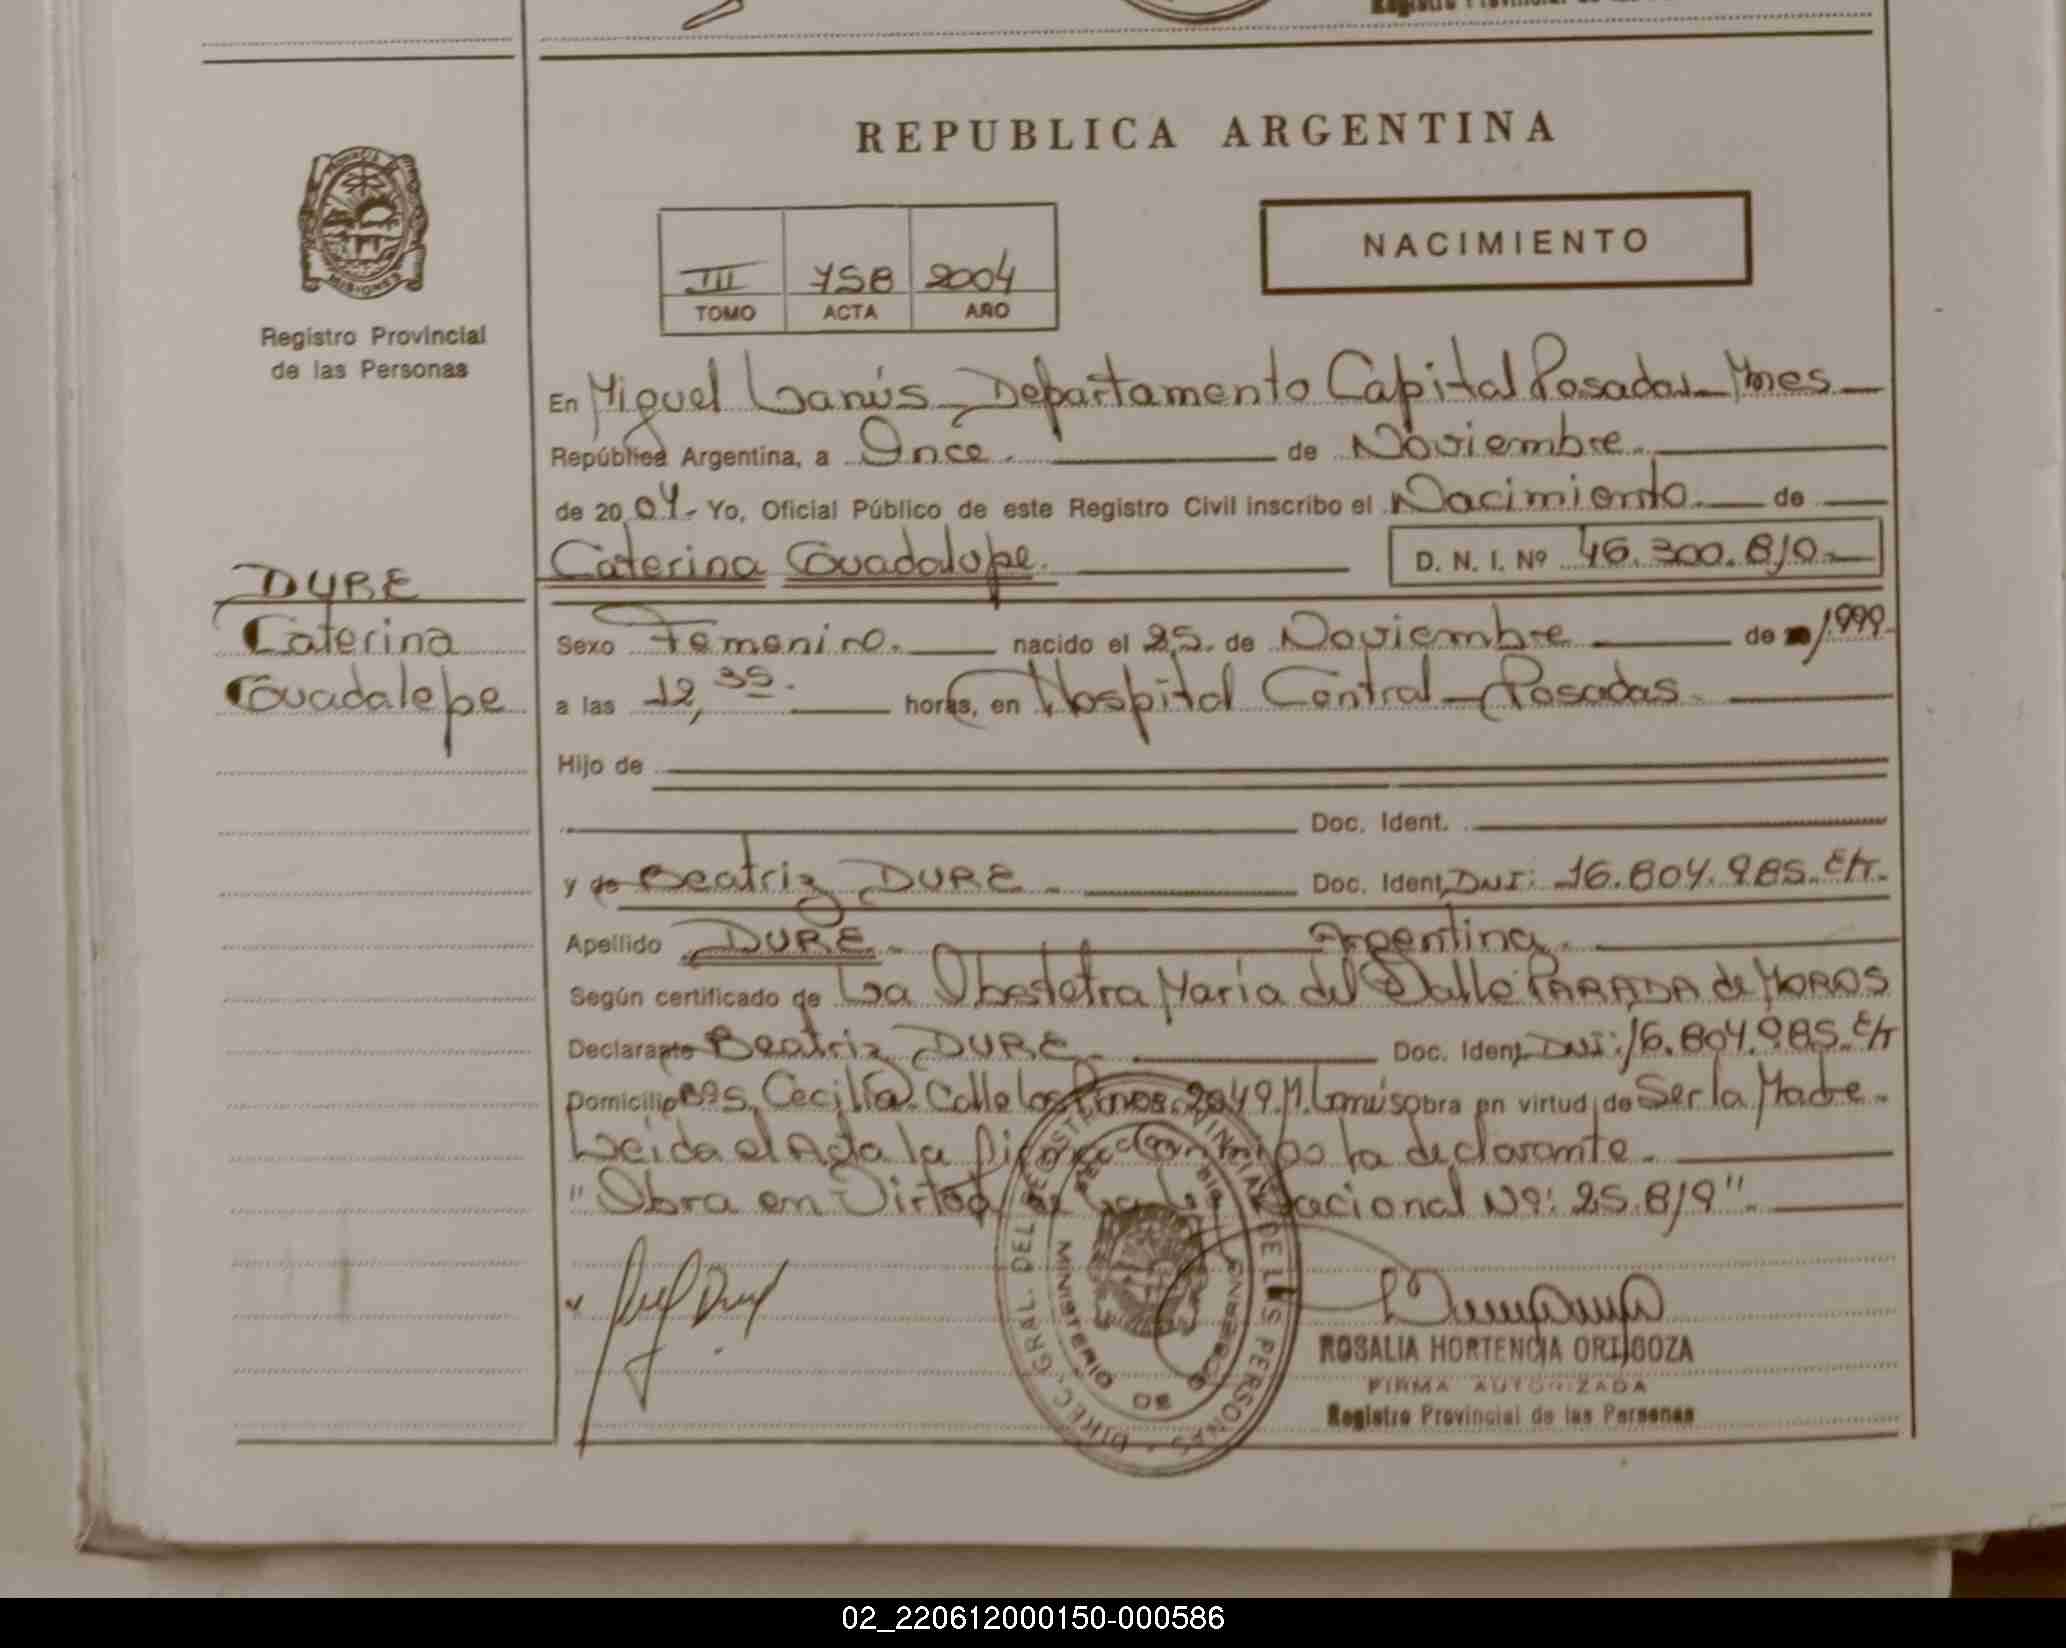 REPUBLICA ARGENTINA
MISIONES
Registro Provincial
de las Personas
NACIMIENTO
III 758 2004
TOMO ACTA AÑO
En Miguel Lanús Departamento Capital Posadas Mnes
República Argentina, a Once. de Noviembre.
de 2004.- Yo, Oficial Público de este Registro Civil inscribo el Nacimiento. de
Caterina Guadalupe. D. N. I. Nº 46.300.810.-
DURE
Caterina
Guadalupe
Sexo Femenino. nacido el 25. de Noviembre de 1999.
a las 12,35. horas, en Hospital Central - Posadas.
Hijo de
Doc. Ident.
y de Beatriz DURE. Doc. Ident. DNI: 16.804.985. E/t.
Apellido DURE.- Argentina.
Según certificado de La Obstetra Maria del Valle PARADA de MOROS
Declarante Beatriz DURE. Doc. Ident. DNI: 16.804.985. E/t
Domicilio Bº S. Cecilia. Calle los Pinos. 2049. M. Lanús obra en virtud de Ser la Madre.-
Leida el Acta la firma conmigo la declarante.
"Obra en Virtud de la Ley Nacional Nº: 25.819".
DIREC. GRAL. DEL REGISTRO PROVINCIAL DE LAS PERSONAS
MINISTERIO DE GOBIERNO
ROSALIA HORTENCIA ORTIGOZA
FIRMA AUTORIZADA
Registro Provincial de las Personas
02_220612000150-000586